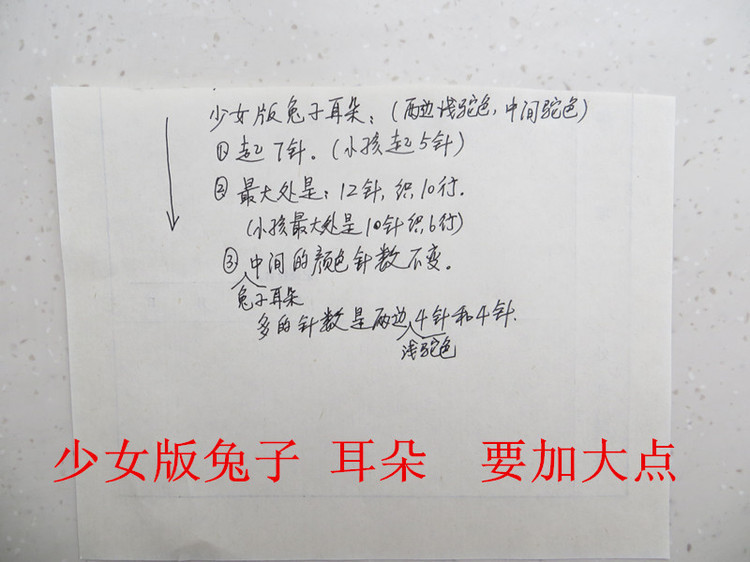 少女版兔子耳朵：(两边浅驼色，中间驼色)
①起7针。(小孩起5针)
②最大处是：12针，织10行.
(小孩最大处是10针织6行)
③中间的颜色针数不变。
兔子耳朵
多的针数是两边4针和4针.
浅驼色
少女版兔子 耳朵 要加大点